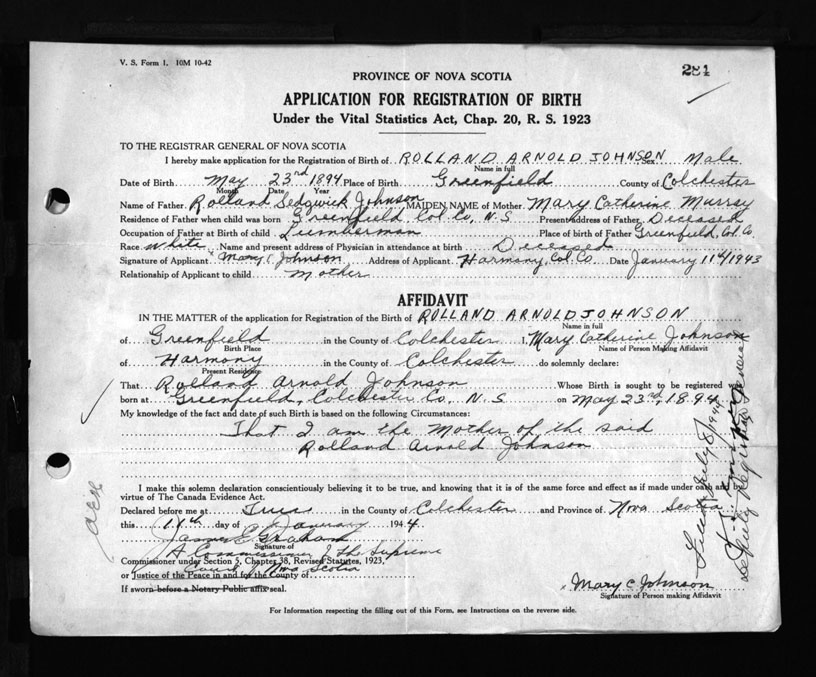 V. S. Form 1. 10M 10-42
281
PROVINCE OF NOVA SCOTIA
APPLICATION FOR REGISTRATION OF BIRTH
Under the Vital Statistics Act, Chap. 20, R. S. 1923
TO THE REGISTRAR GENERAL OF NOVA SCOTIA
I hereby make application for the Registration of Birth of ROLLAND ARNOLD JOHNSON Sex Male
Name in full
Date of Birth May 23rd 1894 Place of Birth Greenfield County of Colchester
Month Date Year
Name of Father Rolland Sedgwick Johnson MAIDEN NAME of Mother Mary Catherine Murray
Residence of Father when child was born Greenfield Col. Co, N.S Present address of Father Deceased
Occupation of Father at Birth of child Lumberman Place of birth of Father Greenfield, Col. Co.
Race White Name and present address of Physician in attendance at birth Deceased
Signature of Applicant Mary C. Johnson Address of Applicant Harmony, Col. Co. Date January 11th/1943
Relationship of Applicant to child Mother
AFFIDAVIT
IN THE MATTER of the application for Registration of the Birth of ROLLAND ARNOLD JOHNSON
Name in full
of Greenfield in the County of Colchester I, Mary Catherine Johnson
Birth Place Name of Person Making Affidavit
of Harmony in the County of Colchester do solemnly declare:
Present Residence
That Rolland Arnold Johnson Whose Birth is sought to be registered was
born at Greenfield, Colchester Co., N.S on May 23rd, 1894
My knowledge of the fact and date of such Birth is based on the following Circumstances:
That I am the Mother of the said
Rolland Arnold Johnson
I make this solemn declaration conscientiously believing it to be true, and knowing that it is of the same force and effect as if made under oath and by
virtue of The Canada Evidence Act.
Declared before me at Truro in the County of Colchester and Province of Nova Scotia
this 11th day of January 1944
James E Graham
Signature of
A Commissioner of the Supreme
Commissioner under Section 5, Chapter 38, Revised Statutes, 1923,
Court of Nova Scotia
or Justice of the Peace in and for the County of
If sworn before a Notary Public affix seal.
Mary C Johnson
Signature of Person making Affidavit
For Information respecting the filling out of this Form, see Instructions on the reverse side.
July 8/1944
Deputy Registrar General